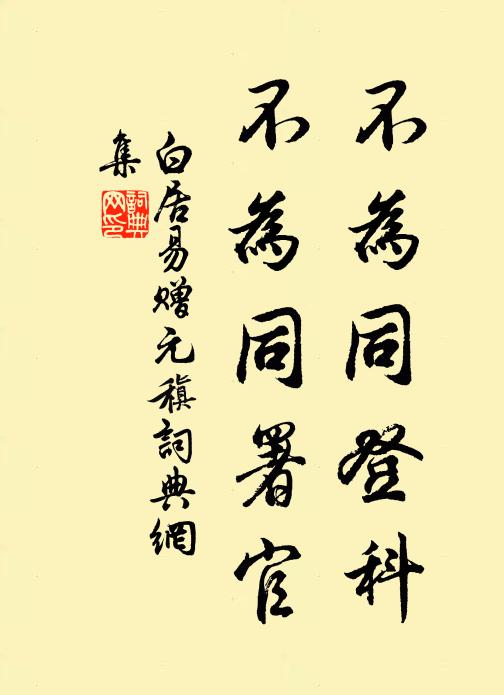 不為同登科
不為同署官
白居易赠元稹詞典網
集
詞典
网印